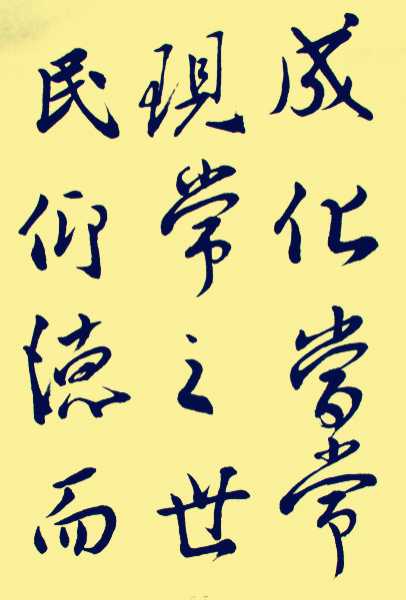 成化當常
現常之世
民仰德而